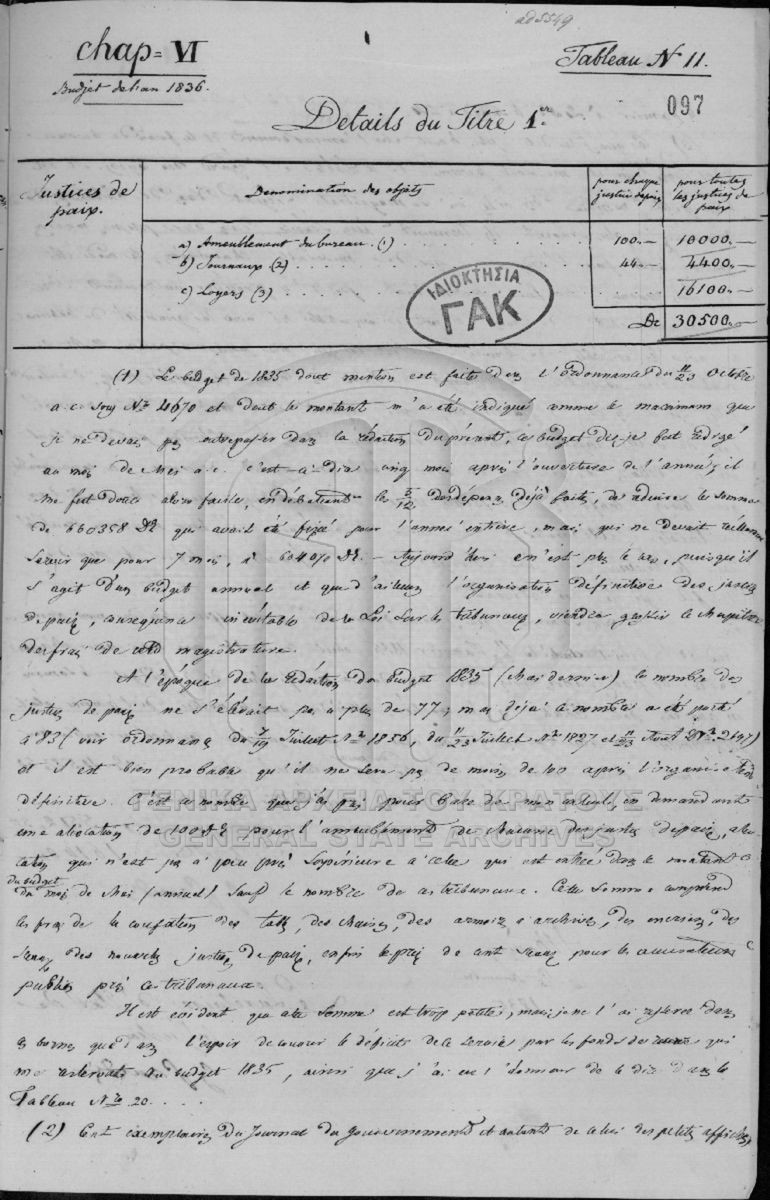 ad 5549
chap = VI
Tableau N 11.
Budjet de l'an 1836.
097
Details du Titre 1.er
Justices de paix.
Denomination des objets
pour chaque justice de paix
pour toutes les justices de paix
a) Ameublement du bureau (1) 100.— 10000.—
b) Journaux (2) 44.— 4400.—
c) Loyers (3) 16100.—
Dr 30500.—
ΙΔΙΟΚΤΗΣΙΑ
ΓΑΚ
(1) Le budget de 1835 dont mention est faite dans l'ordonnance du 11/23 Octobre
a.c. sous No 4670 et dont le montant m'a été indiqué comme le maximum que
je ne devais pas outrepasser dans la rédaction du présent, ce budget fut redigé
au mois de Mai a.c. c'est-à-dire cinq mois après l'ouverture de l'année; il
me fut donc alors facile, en débattant les 5/12 des dépenses déjà faites, de reduire la somme
de 660358 Dr qui avait été fixée pour l'année entière, mais qui ne devait réellement
servir que pour 7 mois, à 604070 Dr. — Aujourd'hui ce n'est plus le cas, puisqu'il
s'agit d'un budget annuel et que d'ailleurs l'organisation définitive des justices
de paix, conséquence inévitable de la Loi sur les tribunaux, viendra grossir le chapitre
des frais de cette magistrature.
A l'époque de la rédaction du budget 1835 (Mai dernier) le nombre des
justices de paix ne s'élevait pas à plus de 77; mais déjà ce nombre a été porté
à 83 (voir ordonnance du 7/19 Juillet No 1856, du 11/23 Juillet No 1827 et 11/23 Août No 2147)
et il est bien probable qu'il ne sera pas de moins de 100 après l'organisation
définitive. C'est ce nombre que j'ai pris pour base de mon calcul, en demandant
une allocation de 100 Dr pour l'ameublement de chacune des justices de paix, allo-
cation qui n'est pas à peu près supérieure à celle qui est entrée dans le montant
du budget
du mois de Mai (annuel) sauf le nombre de ces tribunaux. Cette somme comprend
les frais de la confection des tables, des chaises, des armoires à archives, des encriers, des
sceaux des nouvelles justices de paix, enfin le prix de cent sceaux pour les accusateurs
publics près ces tribunaux.
Il est évident que cette somme est trop petite, mais je ne l'ai resserée dans
ces bornes que dans l'espoir de couvrir le déficit de ce service par les fonds qui
me restent au budget 1835, ainsi que j'ai eu l'honneur de le dire dans le
Tableau No 20.
(2) Cent exemplaires du Journal du gouvernement et autant de celui des petites affiches
ΓΕΝΙΚΑ ΑΡΧΕΙΑ ΤΟΥ ΚΡΑΤΟΥΣ
GENERAL STATE ARCHIVES